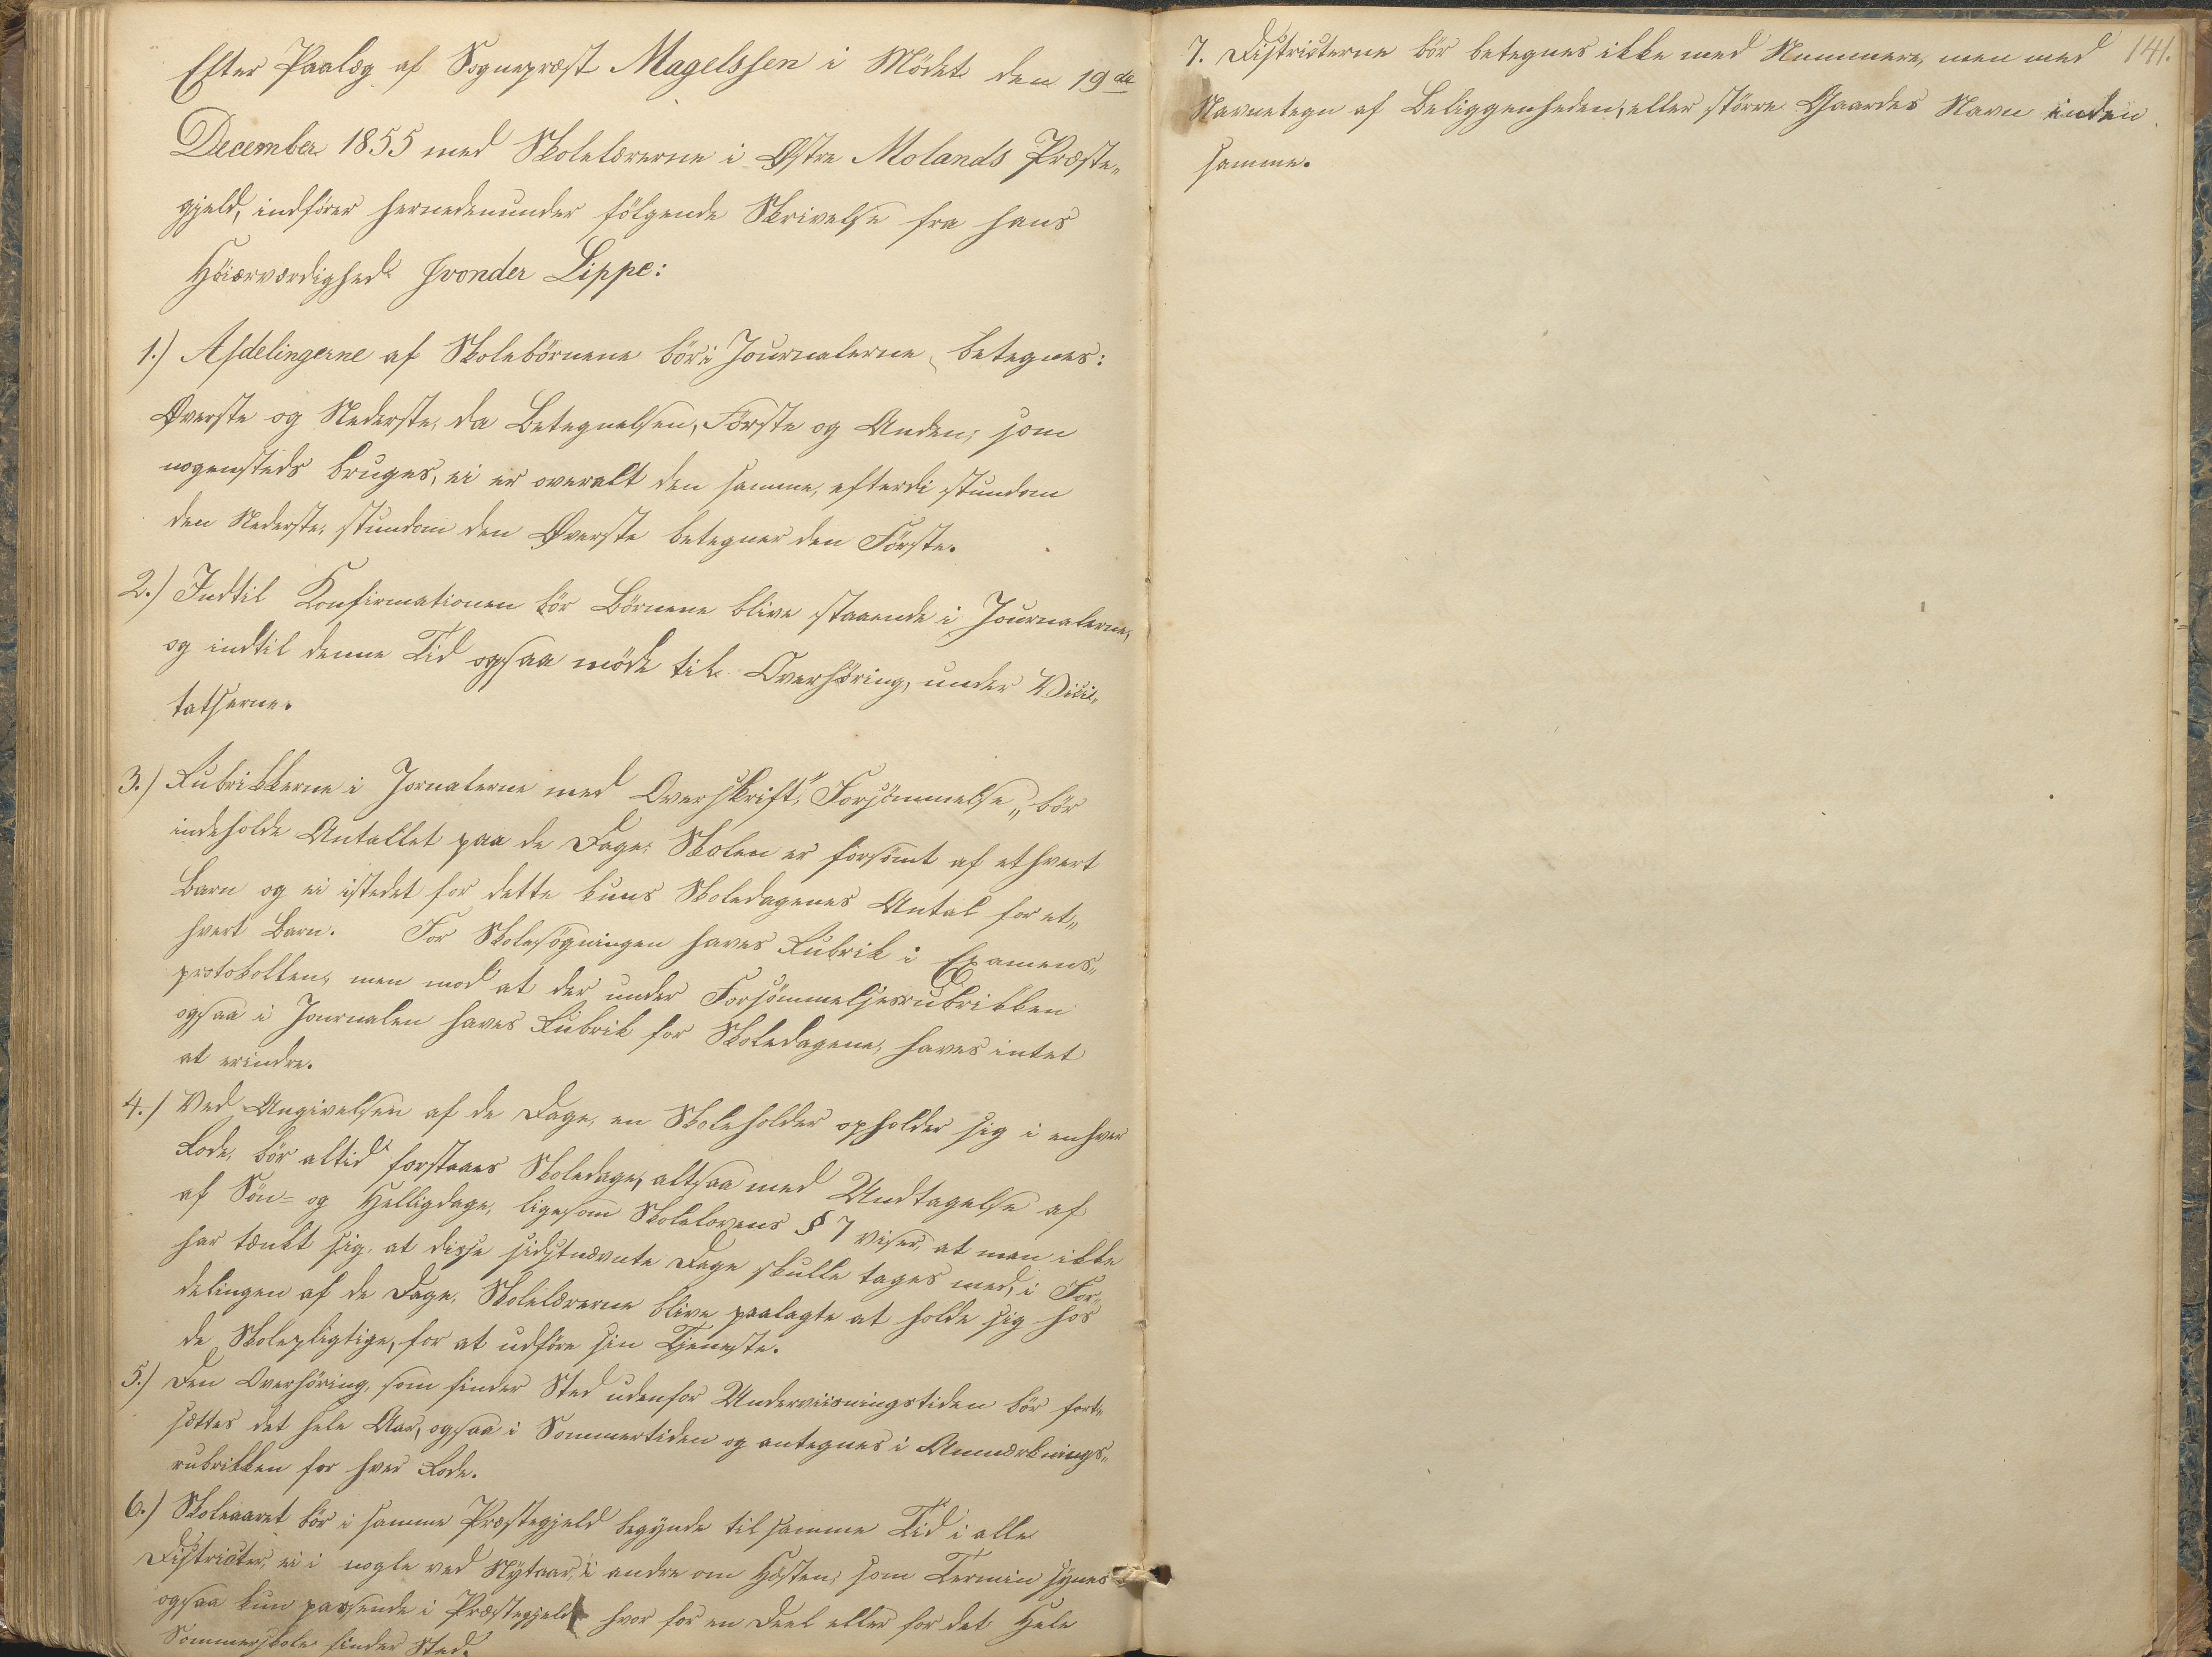 Efter Paalæg af Sognepræst Magelssen i Mödet den 19de
December 1855 med Skolelærerne i Østre Molands Præste„
gjeld, indförer hernedenunder fölgende Skrivelse fra hans
Höiærværdighed Jvonder Lippe:
1.) Afdelingerne af Skolebörnene bör i Journalerne betegnes:
Øverste og Nederste, da Betegnelsen, Förste og Anden, som
nogensteds bruges, ei er overalt den samme, efterdi stundom
den Nederste, stundom den Øverste betegner den Förste.
2.) Indtil Konfirmationen bör Börnene blive staaende i Journalerne,
og indtil denne Tid ogsaa möde til Overhöring, under Visi„
tatserne.
3.) Rubrikkerne i Jornalerne med Overskrift, "Forsömmelse„ bör
indeholde Antallet paa de Dage, Skolen er forsömt af ethvert
Barn og ei istedet for dette kuns Skoledagenes Antal for et„
hvert Barn. For Skolesögningen haves Rubrik i Examens„
protokollen, men mod at der under Forsömmelsesrubrikken
ogsaa i Journalen haves Rubrik for Skoledagene, haves intet
at erindre.
4.) Ved Angivelsen af de Dage, en Skoleholder opholder sig i enhver
Rode, bör altid forstaaes Skoledage, altsaa med Undtagelse af
af Sön- og Helligdage, ligesom Skolelovens § 7 viser, at man ikke
har tænkt sig, at disse sidstnævnte Dage skulle tages med, i For„
delingen af de Dage, Skolelærerne blive paalagte at holde sig hos
de Skolepligtige, for at udföre sin Tjeneste.
5.) Den Overhöring, som finder Sted udenfor Underviisningstiden bör fort„
sættes det hele Aar, ogsaa i Sommertiden og antegnes i Anmærknings„
rubrikken for hver Rode.
6.) Skoleaaret bör i samme Præstegjeld begynde til samme Tid i alle
Districter, ei i nogle ved Nytaar, i andre om Hösten, som Termin synes
ogsaa kun passende i Præstegjeld hvor for en Deel eller for det Hele
Sommerskole finder Sted.
141.
7. Districterne bör betegnes ikke med Nummere, men med
Navnetegn af Beliggenheden, eller större Gaardes Navn inden
samme.